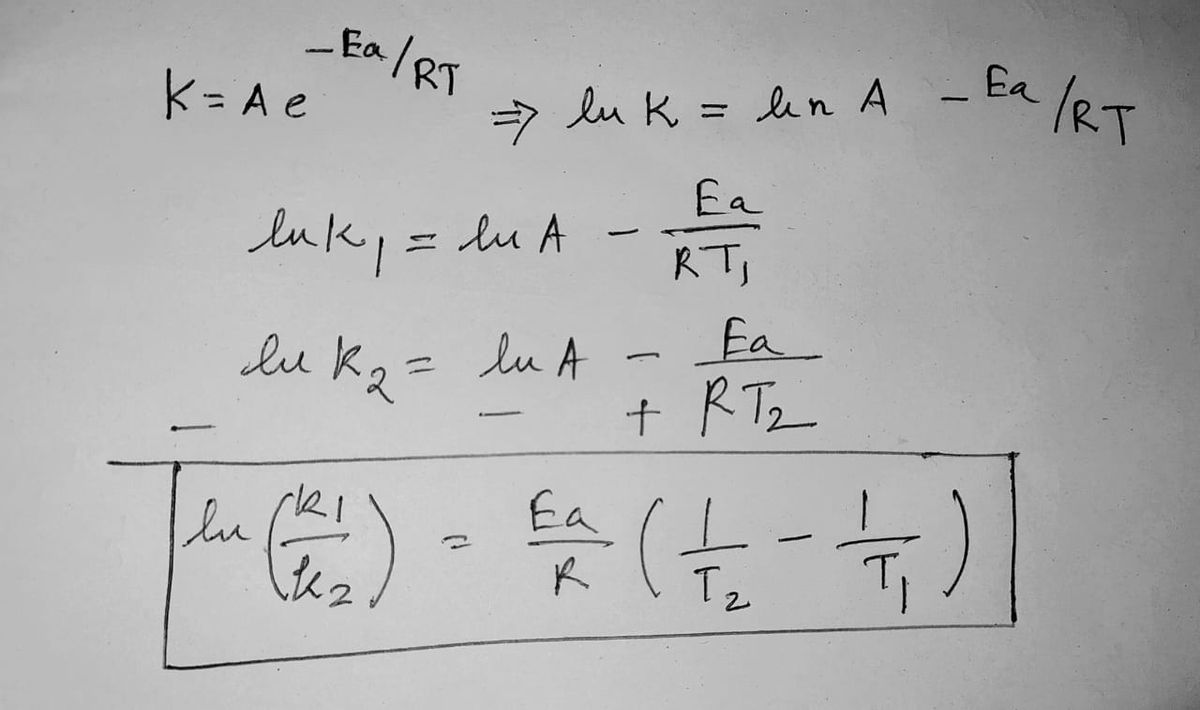 K = A e^(-Ea/RT) ⇒ ln K = ln A - Ea/RT
ln k₁ = ln A - Ea/RT₁
ln k₂ = ln A - Ea/RT₂
- - +
ln (k₁/k₂) = Ea/R (1/T₂ - 1/T₁)